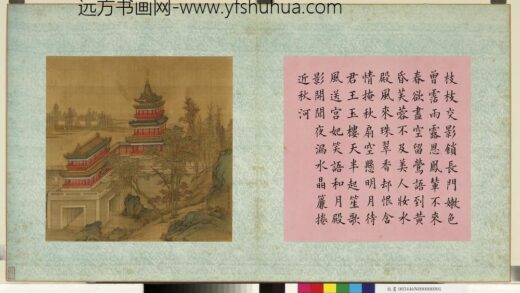 远方书画网-www.yfshuhua.com
枝枝交影鎖長門嫩色
曾霑雨露恩鳳輦不來
春欲盡空留鶯語到黃
昏芙蓉不及美人妝水
殿風來珠翠香却恨含
情掩秋扇空懸明月待
君王玉樓天半起笙歌
風送宮妃笑語和月殿
影開聞夜漏水晶簾捲
近秋河